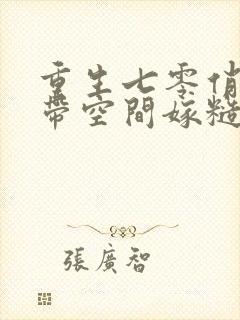 重生七零俏
帶空間嫁糙
張廣智